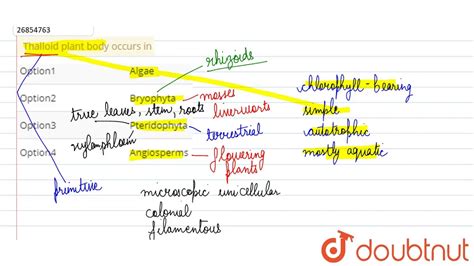 26854763
Thalloid plant body occurs in
rhizoids
Option1 Algae chlorophyll-bearing
Option2 Bryophyta mosses
liverworts simple
true leaves, stem, roots
Option3 Pteridophyta terrestrial autotrophic
xylem phloem
Option4 Angiosperms flowering plants mostly aquatic
primitive
microscopic unicellular
colonial
filamentous
doubtnut